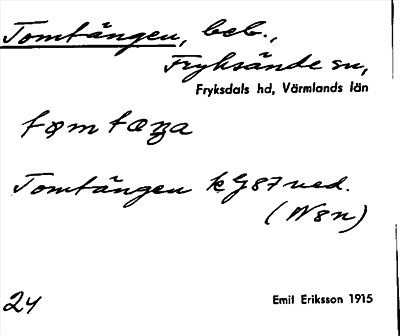 Tomtängen, beb.,
Fryksände sn,
Fryksdals hd, Värmlands län
Tomtängen kG87ned.
(N8n)
24
Emil Eriksson 1915